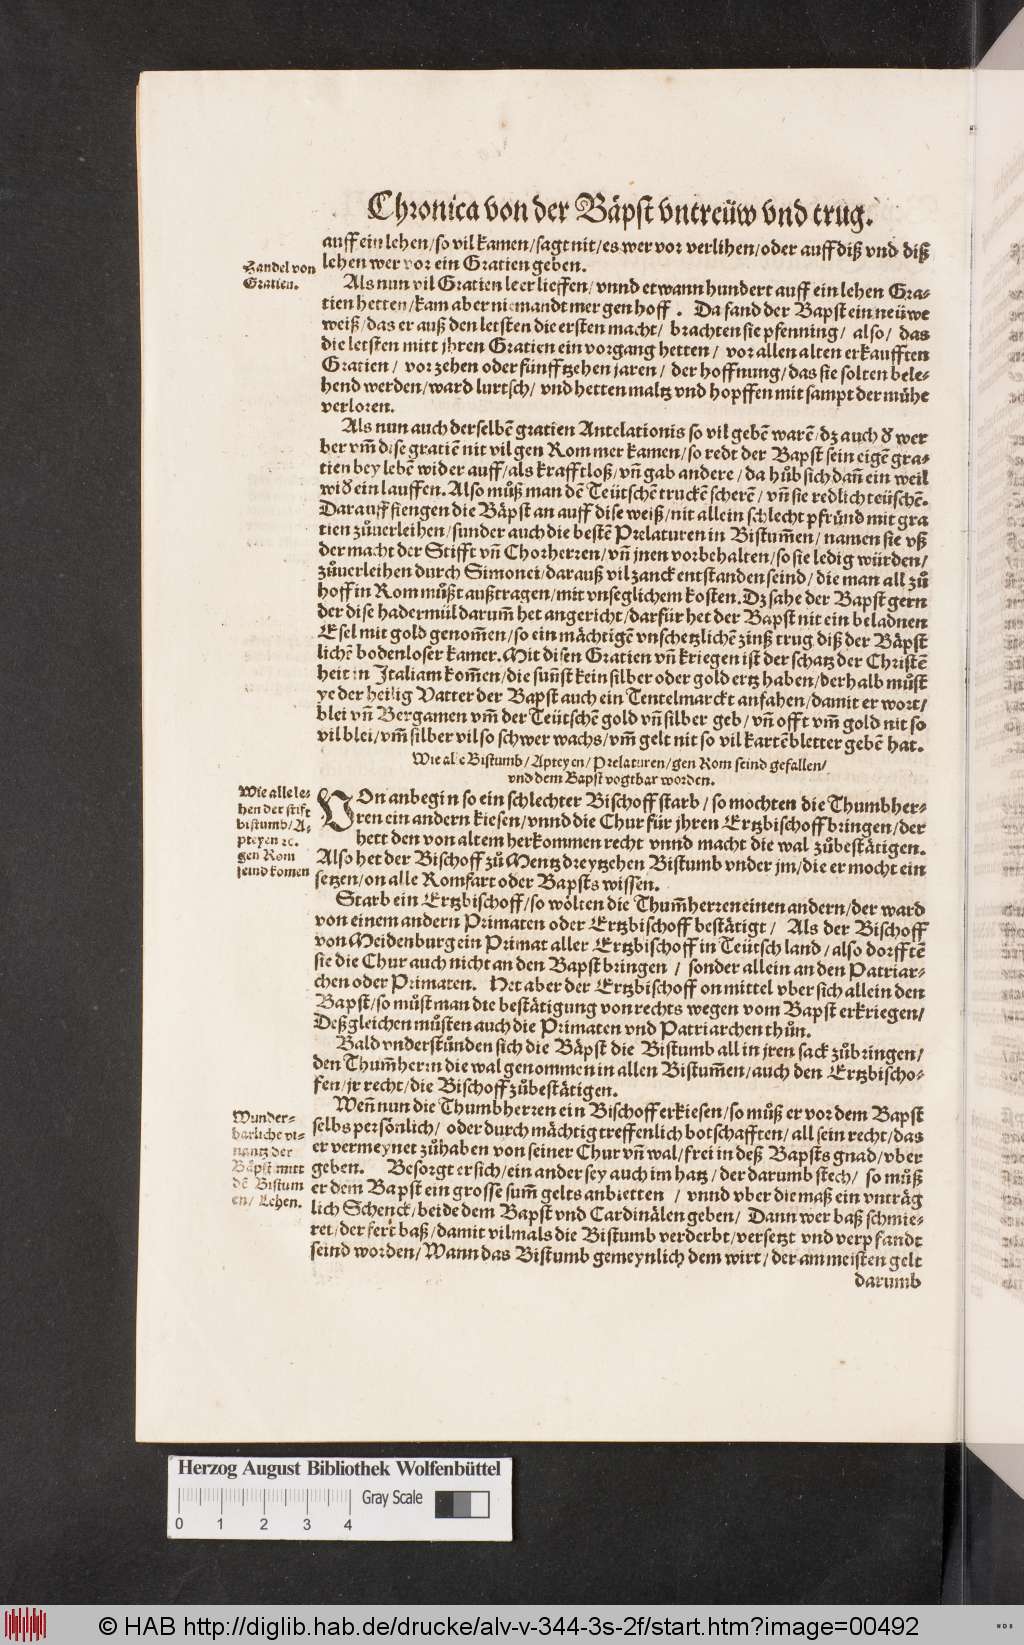 Chronica von der Bäpst vntreüw vnd trug.
auff ein lehen/so vil kamen/sagt nit/es wer vor verlihen/oder auff diß vnd diß
lehen wer vor ein Gratien geben.
Handel von
Gratien.
Als nun vil Gratien leer lieffen/vnnd etwann hundert auff ein lehen Gra-
tien hetten/kam aber niemandt mer gen hoff. Da fand der Bapst ein neüwe
weiß/das er auß den letsten die ersten macht/ brachten sie pfenning/ also/ das
die letsten mitt jhren Gratien ein vorgang hetten/ vor allen alten erkaufften
Gratien/ vor zehen oder fünfftzehen jaren/ der hoffnung/das sie solten bele-
hend werden/ward lurtsch/ vnd hetten maltz vnd hopffen mit sampt der mühe
verloren.
Als nun auch derselbē gratien Antelationis so vil gebē warē/dz auch ď wer
ber vm̄ dise gratiē nit vil gen Rom mer kamen/so redt der Bapst sein eigē gra-
tien bey lebē wider auff/als krafftloß/vn̄ gab andere/da hůb sich dan̄ ein weil
wiď ein lauffen. Also můß man dē Teütschē truckē scherē/ vn̄ sie redlich teüschē.
Darauff fiengen die Bäpst an auff dise weiß/nit allein schlecht pfründ mit gra
tien zůuerleihen/sunder auch die bestē Prelaturen in Bistum̄en/ namen sie vß
der macht der Stifft vn̄ Chorherren/vn̄ jnen vorbehalten/so sie ledig würden/
zůuerleihen durch Simonei/darauß vil zanck entstanden seind/die man all zů
hoff in Rom můßt außtragen/mit vnseglichem kosten. Dz sahe der Bapst gern
der dise hadermül darum̄ het angericht/darfür het der Bapst nit ein beladnen
Esel mit gold genom̄en/so ein mächtigē vnschetzlichē zinß trug diß der Bäpst
lichē bodenloser kamer. Mit disen Gratien vn̄ kriegen ist der schatz der Christē
heit in Italiam kom̄en/die sun̄st kein silber oder gold ertz haben/derhalb můst
ye der heilig Vatter der Bapst auch ein Tentelmarckt anfahen/damit er wort/
blei vn̄ Bergamen vm̄ der Teütschē gold vn̄ silber geb/vn̄ offt vm̄ gold nit so
vil blei/vm̄ silber vil so schwer wachs/vm̄ gelt nit so vil kartēbletter gebē hat.
Wie alle Bistumb/Apteyen/Prelaturen/gen Rom seind gefallen/
vnd dem Bapst vogtbar worden.
Wie alle le-
hen der stift
bistumb/A-
pteyen ꝛc.
gen Rom
seind komen
VOn anbegin so ein schlechter Bischoff starb/so mochten die Thumbher-
ren ein andern kiesen/vnnd die Chur für jhren Ertzbischoff bringen/der
hett den von altem herkommen recht vnnd macht die wal zůbestätigen.
Also het der Bischoff zů Mentz dreytzehen Bistumb vnder jm/die er mocht ein
setzen/on alle Romfart oder Bapsts wissen.
Starb ein Ertzbischoff/so wölten die Thum̄herren einen andern/der ward
von einem andern Primaten oder Ertzbischoff bestätigt/ Als der Bischoff
von Meidenburg ein Primat aller Ertzbischoff in Teütschland/also dorfftē
sie die Chur auch nicht an den Bapst bringen/ sonder allein an den Patriar-
chen oder Primaten. Het aber der Ertzbischoff on mittel vber sich allein den
Bapst/so můst man die bestätigung von rechts wegen vom Bapst erkriegen/
Deßgleichen můsten auch die Primaten vnd Patriarchen thůn.
Bald vnderstünden sich die Bäpst die Bistumb all in jren sack zůbringen/
den Thum̄hern die wal genommen in allen Bistum̄en/auch den Ertzbischo-
fen/jr recht/die Bischoff zůbestätigen.
Wunder-
barliche vi-
nantz der
Bäpst mitt
dē Bistum
en/ Lehen.
Wen̄ nun die Thumbherren ein Bischoff erkiesen/so můß er vor dem Bapst
selbs persönlich/ oder durch mächtig treffenlich botschafften/all sein recht/das
er vermeynet zůhaben von seiner Chur vn̄ wal/frei in deß Bapsts gnad/vber
geben. Besorgt er sich/ein ander sey auch im hatz/der darumb stech/ so můß
er dem Bapst ein grosse sum̄ gelts anbietten/ vnnd vber die maß ein vnträg
lich Schenck/beide dem Bapst vnd Cardinälen geben/ Dann wer baß schmie-
ret/der fert baß/damit vilmals die Bistumb verderbt/versetzt vnd verpfandt
seind worden/Wann das Bistumb gemeynlich dem wirt/der am meisten gelt
darumb
Herzog August Bibliothek Wolfenbüttel
Gray Scale
0 1 2 3 4
© HAB http://diglib.hab.de/drucke/alv-v-344-3s-2f/start.htm?image=00492